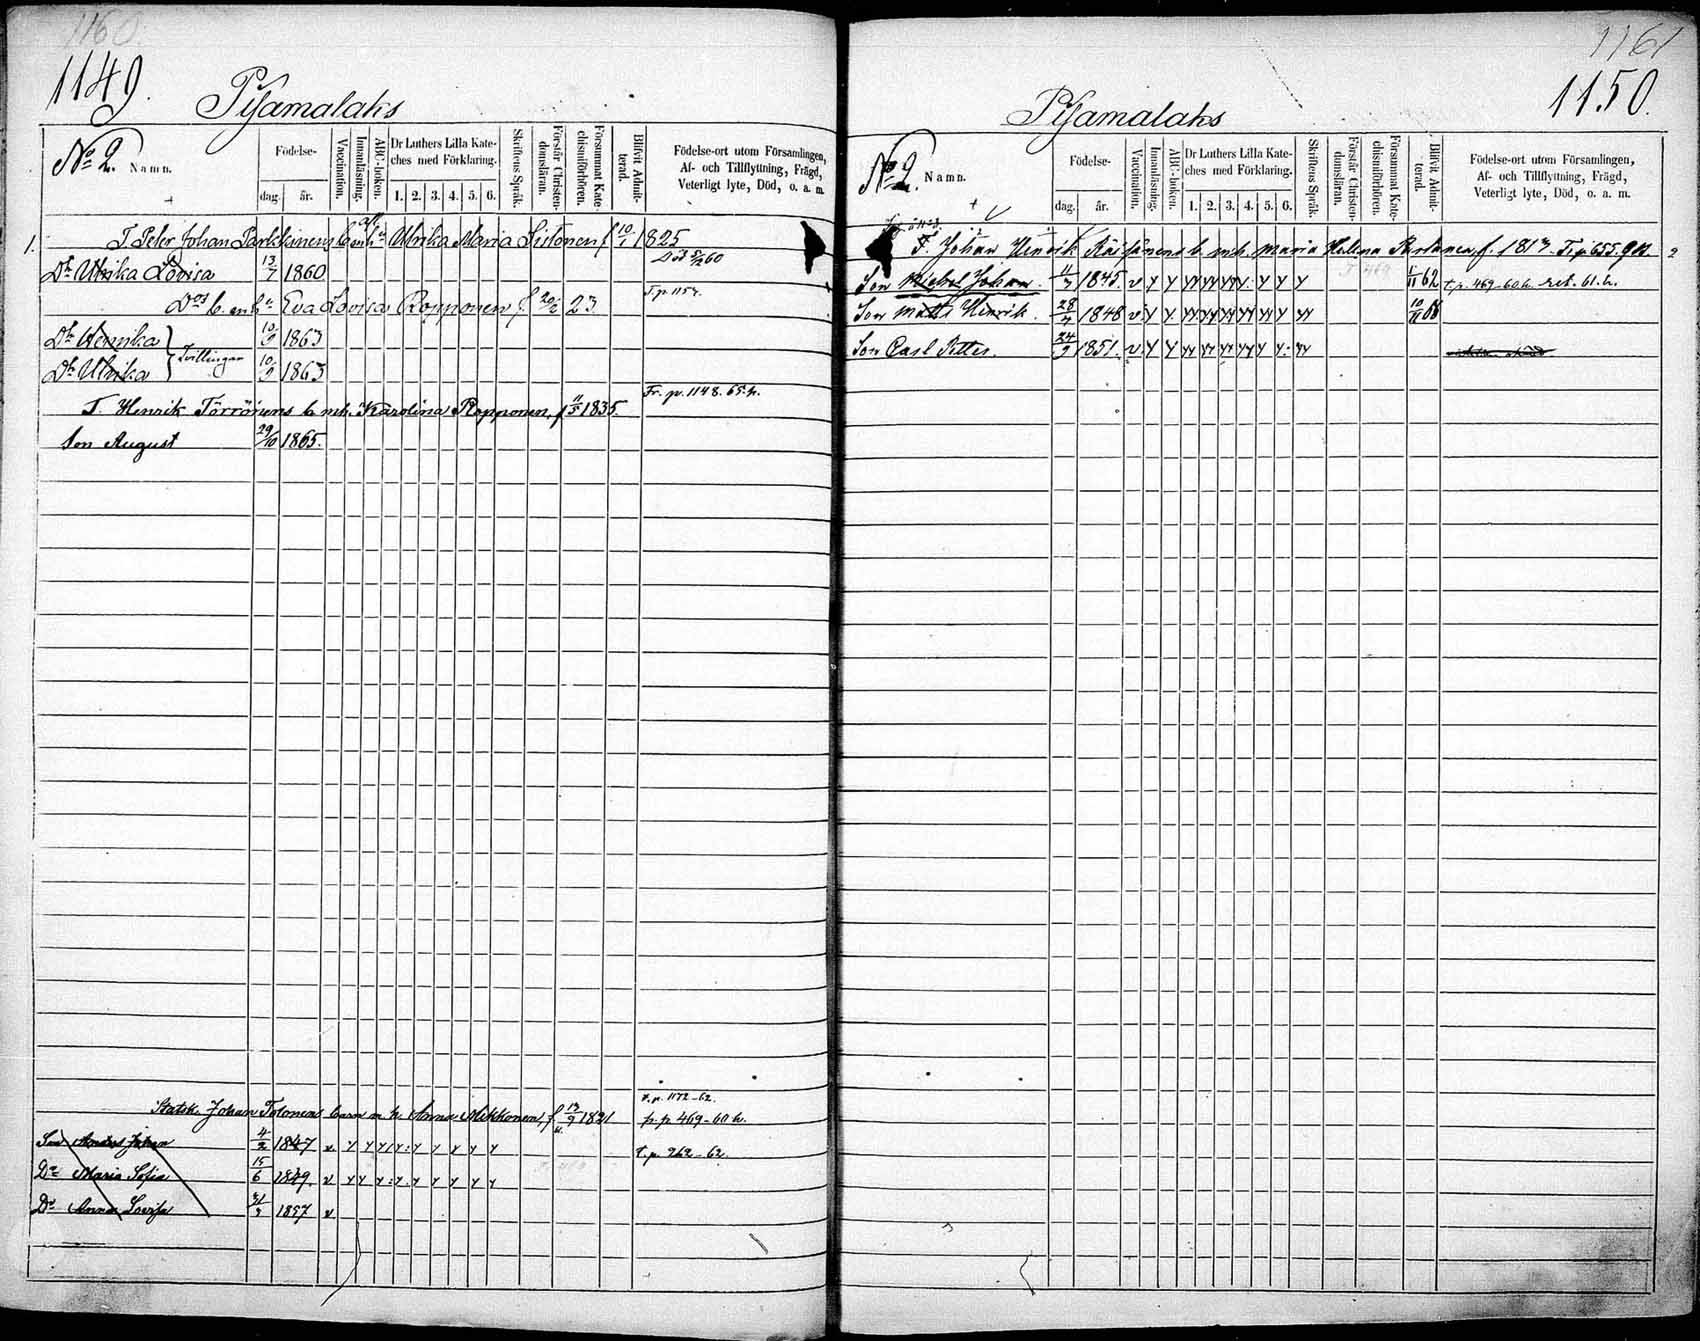 1160
1149.
Pijamalaks
No 2. Namn.
Födelse-
dag. år.
Vaccination.
Innanläsning.
ABC-boken.
Dr Luthers Lilla Kate-
ches med Förklaring.
1. 2. 3. 4. 5. 6.
Skriftens Språk.
Förstår Christen-
domsläran.
Försummat Kate-
chismiförhören.
Blifvit Admit-
terad.
Födelse-ort utom Församlingen,
Af- och Tillflyttning, Frägd,
Veterligt lyte, Död, o. a. m.
1. T. Peter Johan Parkkinens b. m. h. Ulrika Maria Siitonen f 10/1 1825
Dr Ulrika Lovisa 13/7 1860 Död 60
Dos b. m. h. Eva Lovisa Ropponen f. 20/2 23. T. p. 1157.
Dr Hennika 10/9 1863
Tvillingar
Dr Ulrika 10/9 1863
T. Henrik Törrönens b. m. h. Karolina Ropponen, f 11/5 1835. Fr. p. 1148. 65. h.
Son August 29/10 1865.
t. p. 1172-62.
Statsk. Johan Tolonens barn m. h. Anna Mikkonen, f 13/9 1821 fr. p. 469-60 h.
Son Anders Johan 4/2 1847 v. y y y y: y y y y y t. p. 262-62.
Dr Maria Sofia 15/6 1849. v y y y: y. y y y y y
Dr Anna Lovisa 1857 v
1161
1150.
Pijamalaks
No 2. Namn.
Födelse-
dag. år.
Vaccination.
Innanläsning.
ABC-boken.
Dr Luthers Lilla Kate-
ches med Förklaring.
1. 2. 3. 4. 5. 6.
Skriftens Språk.
Förstår Christen-
domsläran.
Försummat Kate-
chismiförhören.
Blifvit Admit-
terad.
Födelse-ort utom Församlingen,
Af- och Tillflyttning, Frägd,
Veterligt lyte, Död, o. a. m.
T. Johan Henrik Räisänens b. m. h. Maria Helena Partanen f. 1817. T. p. 655. 2
Son Michel Johan. 11/3 1845. v y y yy yy yy y: y y y 1/11 62 t. p. 469-60 h. ret. 61. h.
Son Matts Henrik. 28/7 1848 v y y yy yy yy yy y y yy 10/11 66
Son Carl Petter. 24/9 1851. v. y y yy yy yy yy y y: yy